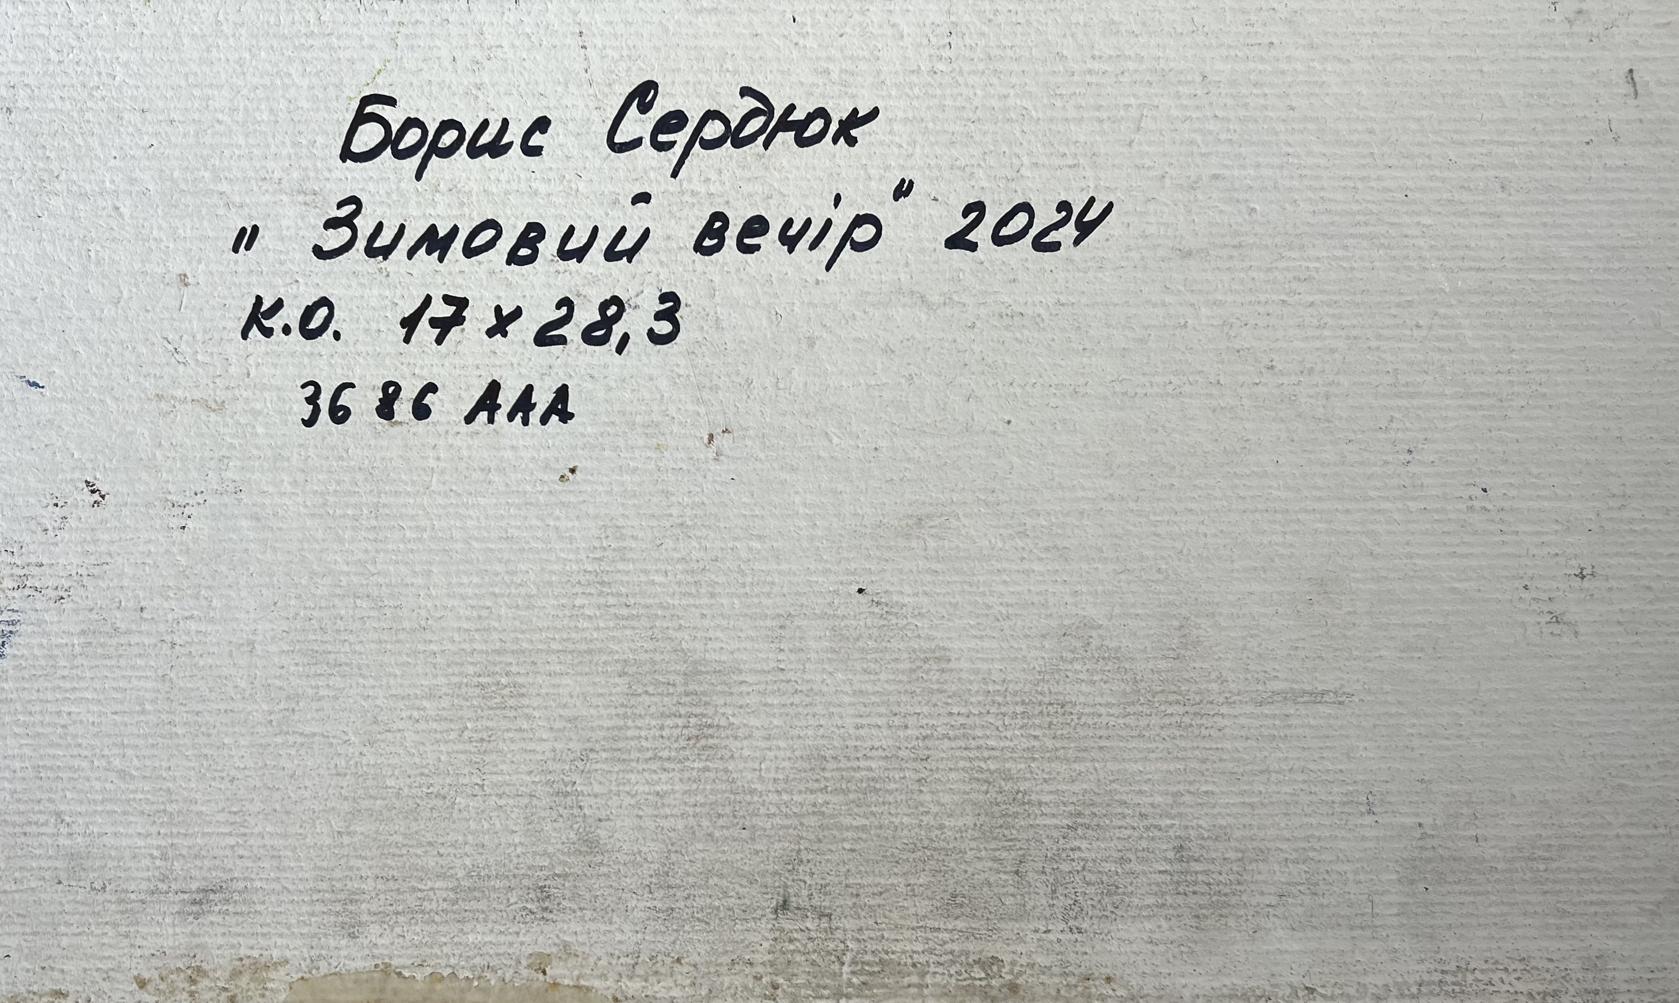 Борис Сердюк
" Зимовий вечір" 2024
к.о. 17 x 28,3
3686 ААА